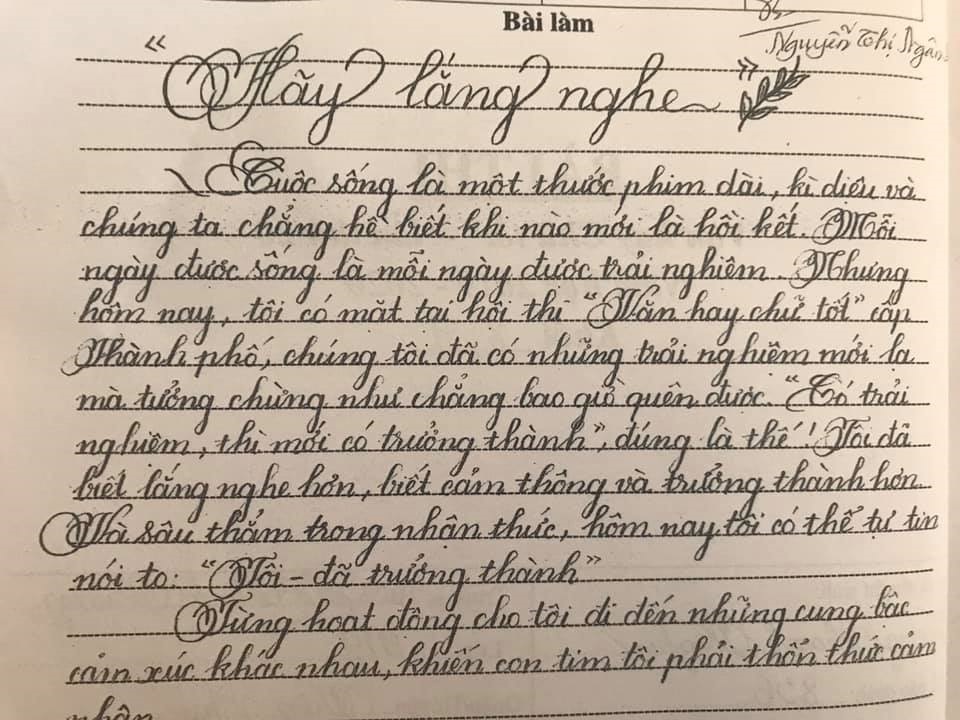 Bài làm
Nguyễn Thị Ngân
“Hãy lắng nghe”
Cuộc sống là một thước phim dài, kì diệu và
chúng ta chẳng hề biết khi nào mới là hồi kết. Mỗi
ngày được sống là mỗi ngày được trải nghiệm. Nhưng
hôm nay, tôi có mặt tại hội thi “Văn hay chữ tốt” cấp
Thành phố, chúng tôi đã có những trải nghiệm mới lạ
mà tưởng chừng như chẳng bao giờ quên được. “Có trải
nghiệm, thì mới có trưởng thành”, đúng là thế! Tôi đã
biết lắng nghe hơn, biết cảm thông và trưởng thành hơn
Và sâu thẳm trong nhận thức, hôm nay tôi có thể tự tin
nói to: “Tôi - đã trưởng thành”
Từng hoạt động cho tôi đi đến những cung bậc
cảm xúc khác nhau, khiến con tim tôi phải thổn thức cảm
nhận